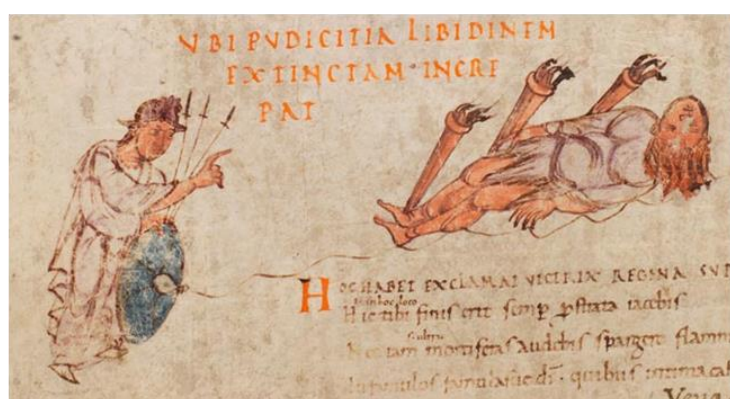 VBI PVDICITIA LIBIDINEM
EXTINCTAM · INCRE
PAT
HOC HABET EXCLAMAT VICTRIX REGINA SVP
in hoc loco
Hic tibi finis erit semp pstrata iacebis
Nec iam mortiferas audebis spargere flamm
In famulos famulasue di · quibus intima ca
Vena